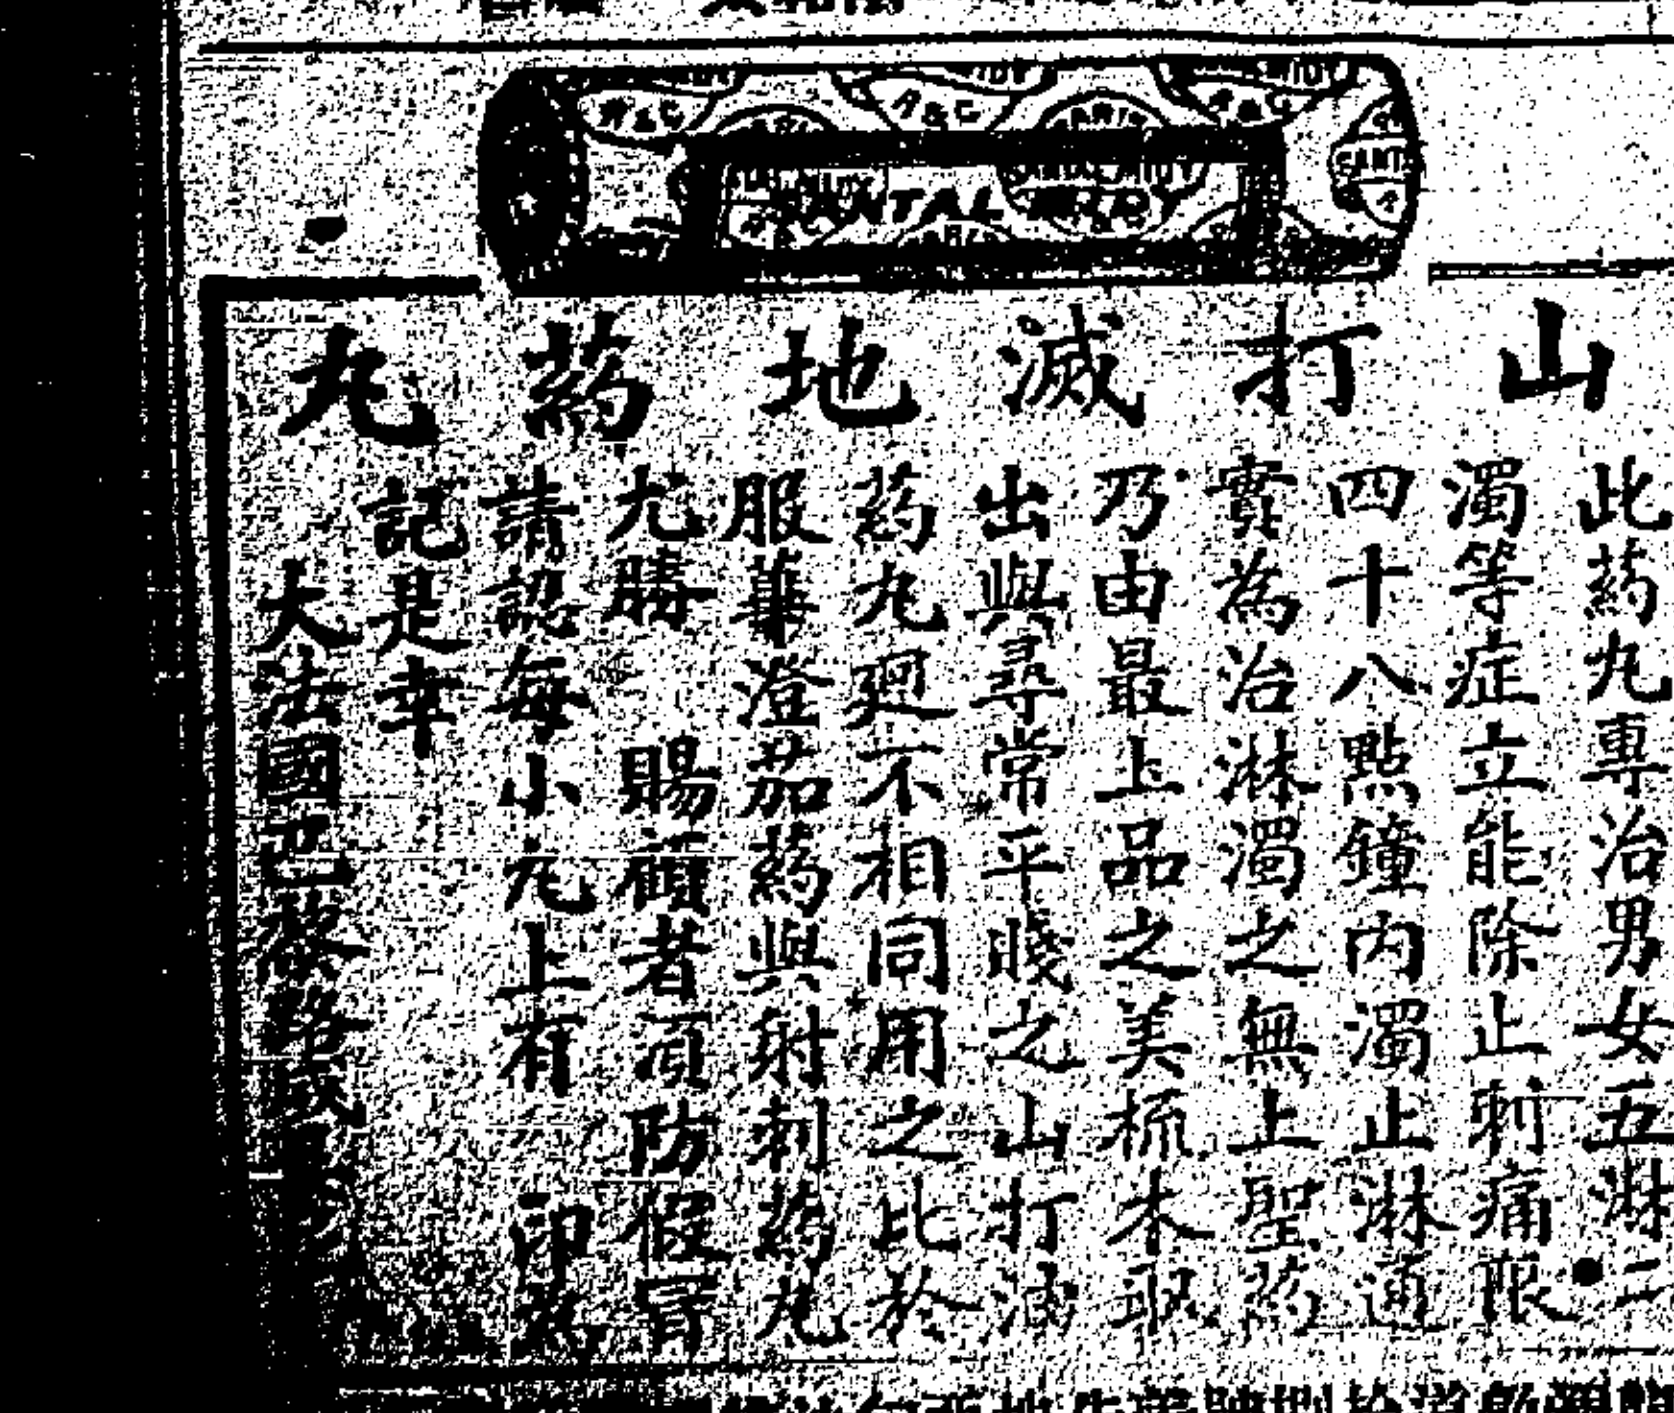 SANTAL MIDY
山打滅地葯丸
此葯丸專治男女五淋二
濁等症立能除止刺痛限
四十八點鐘內濁止淋通
實為治淋濁之無上聖葯
乃由最上品之美𣑱木取
出與尋常平賤之山打滅
葯丸逈不相同用之比於
服蓽澄茄葯與射刺葯丸
尤勝 賜顧者須防假冒
請認每小丸上有 印為
記是幸
大法國巴黎